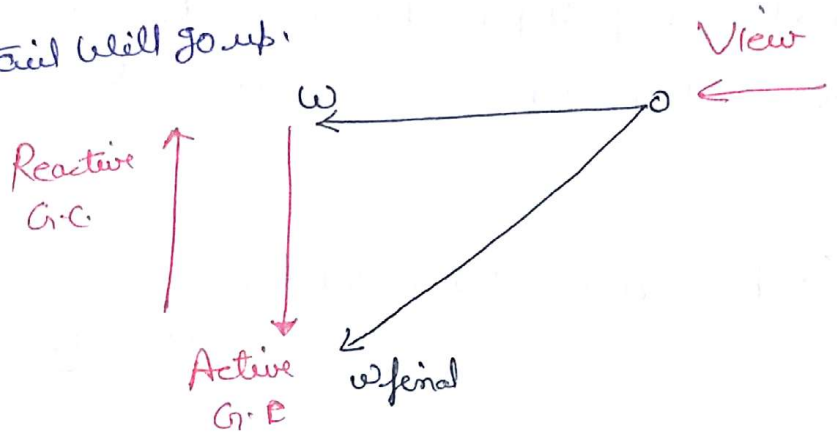 Tail will go up.
View
ω
O
Reactive
G.C.
Active
G.C
ω final